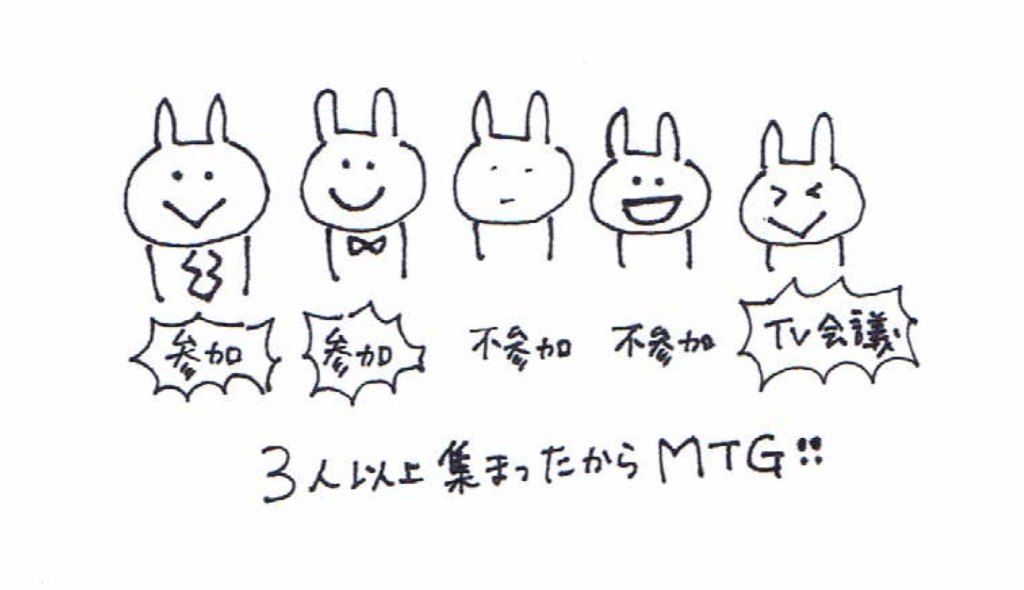 参加 参加 不参加 不参加 TV会議
3人以上集まったからMTG!!